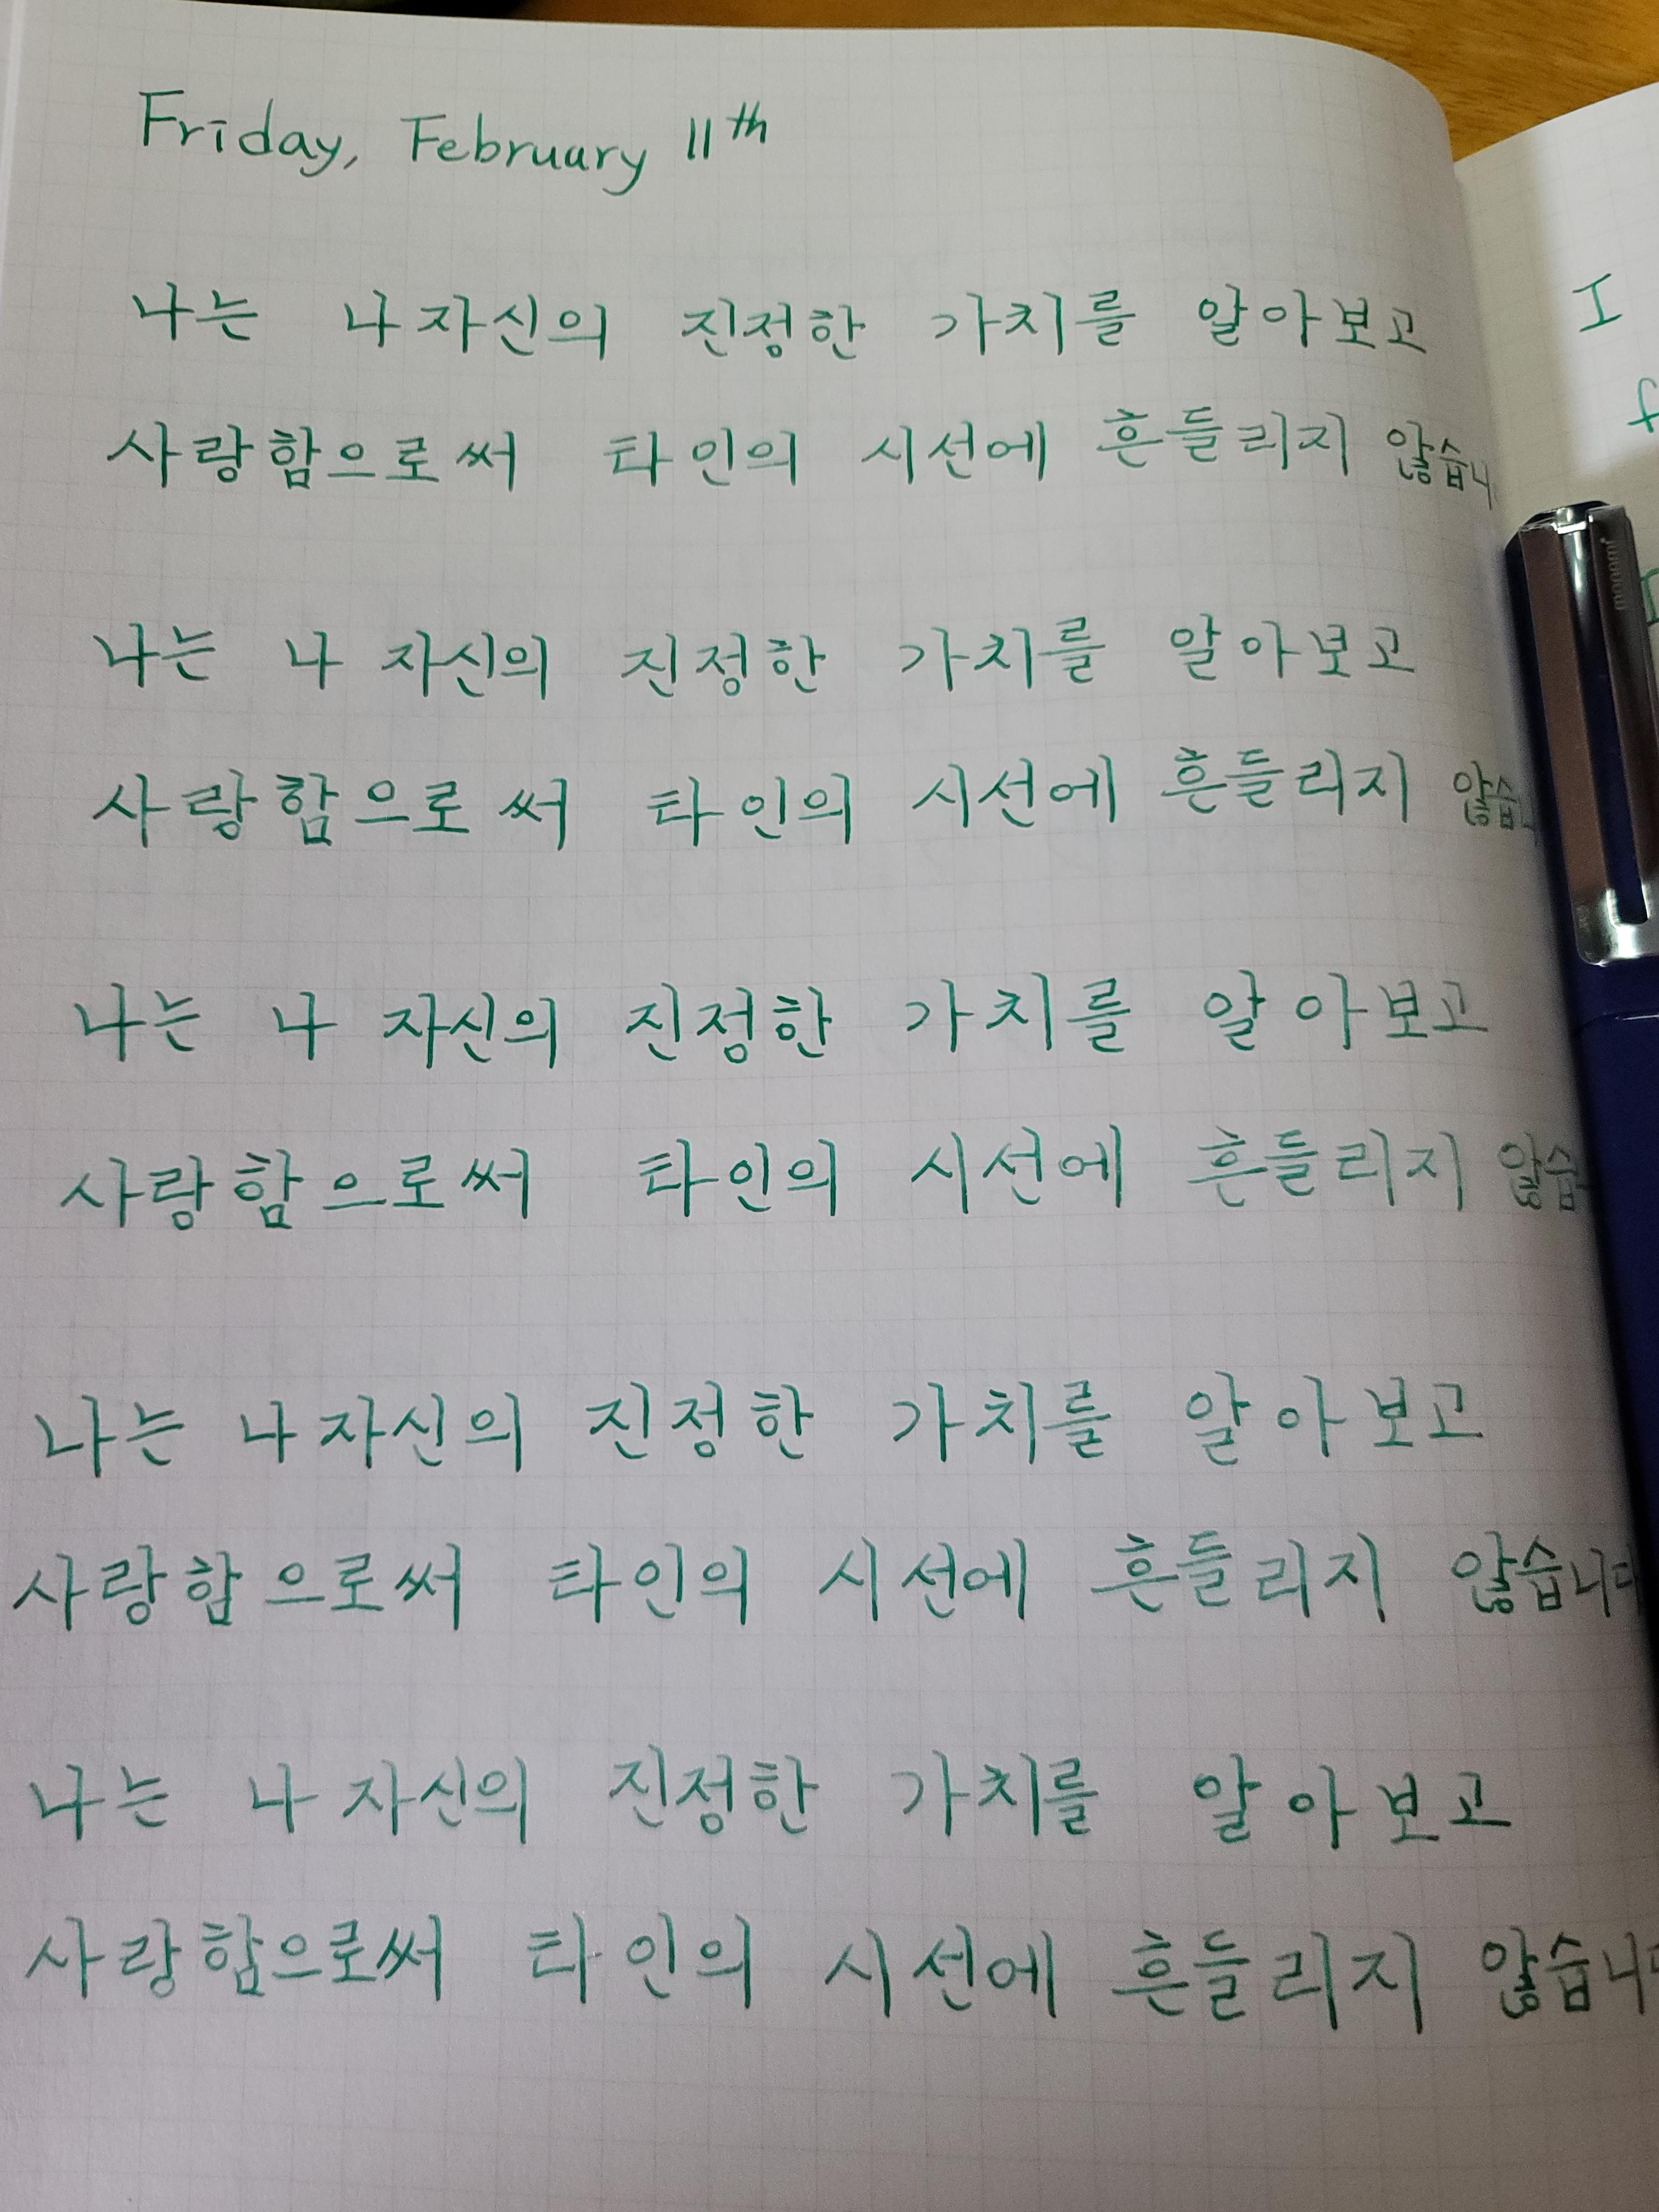 Friday, February 11th
나는 나 자신의 진정한 가치를 알아보고
사랑함으로써 타인의 시선에 흔들리지 않습니
나는 나 자신의 진정한 가치를 알아보고
사랑함으로써 타인의 시선에 흔들리지 않습
나는 나 자신의 진정한 가치를 알아보고
사랑함으로써 타인의 시선에 흔들리지 않습
나는 나 자신의 진정한 가치를 알아보고
사랑함으로써 타인의 시선에 흔들리지 않습니다
나는 나 자신의 진정한 가치를 알아보고
사랑함으로써 타인의 시선에 흔들리지 않습니다
I
f
I
monami